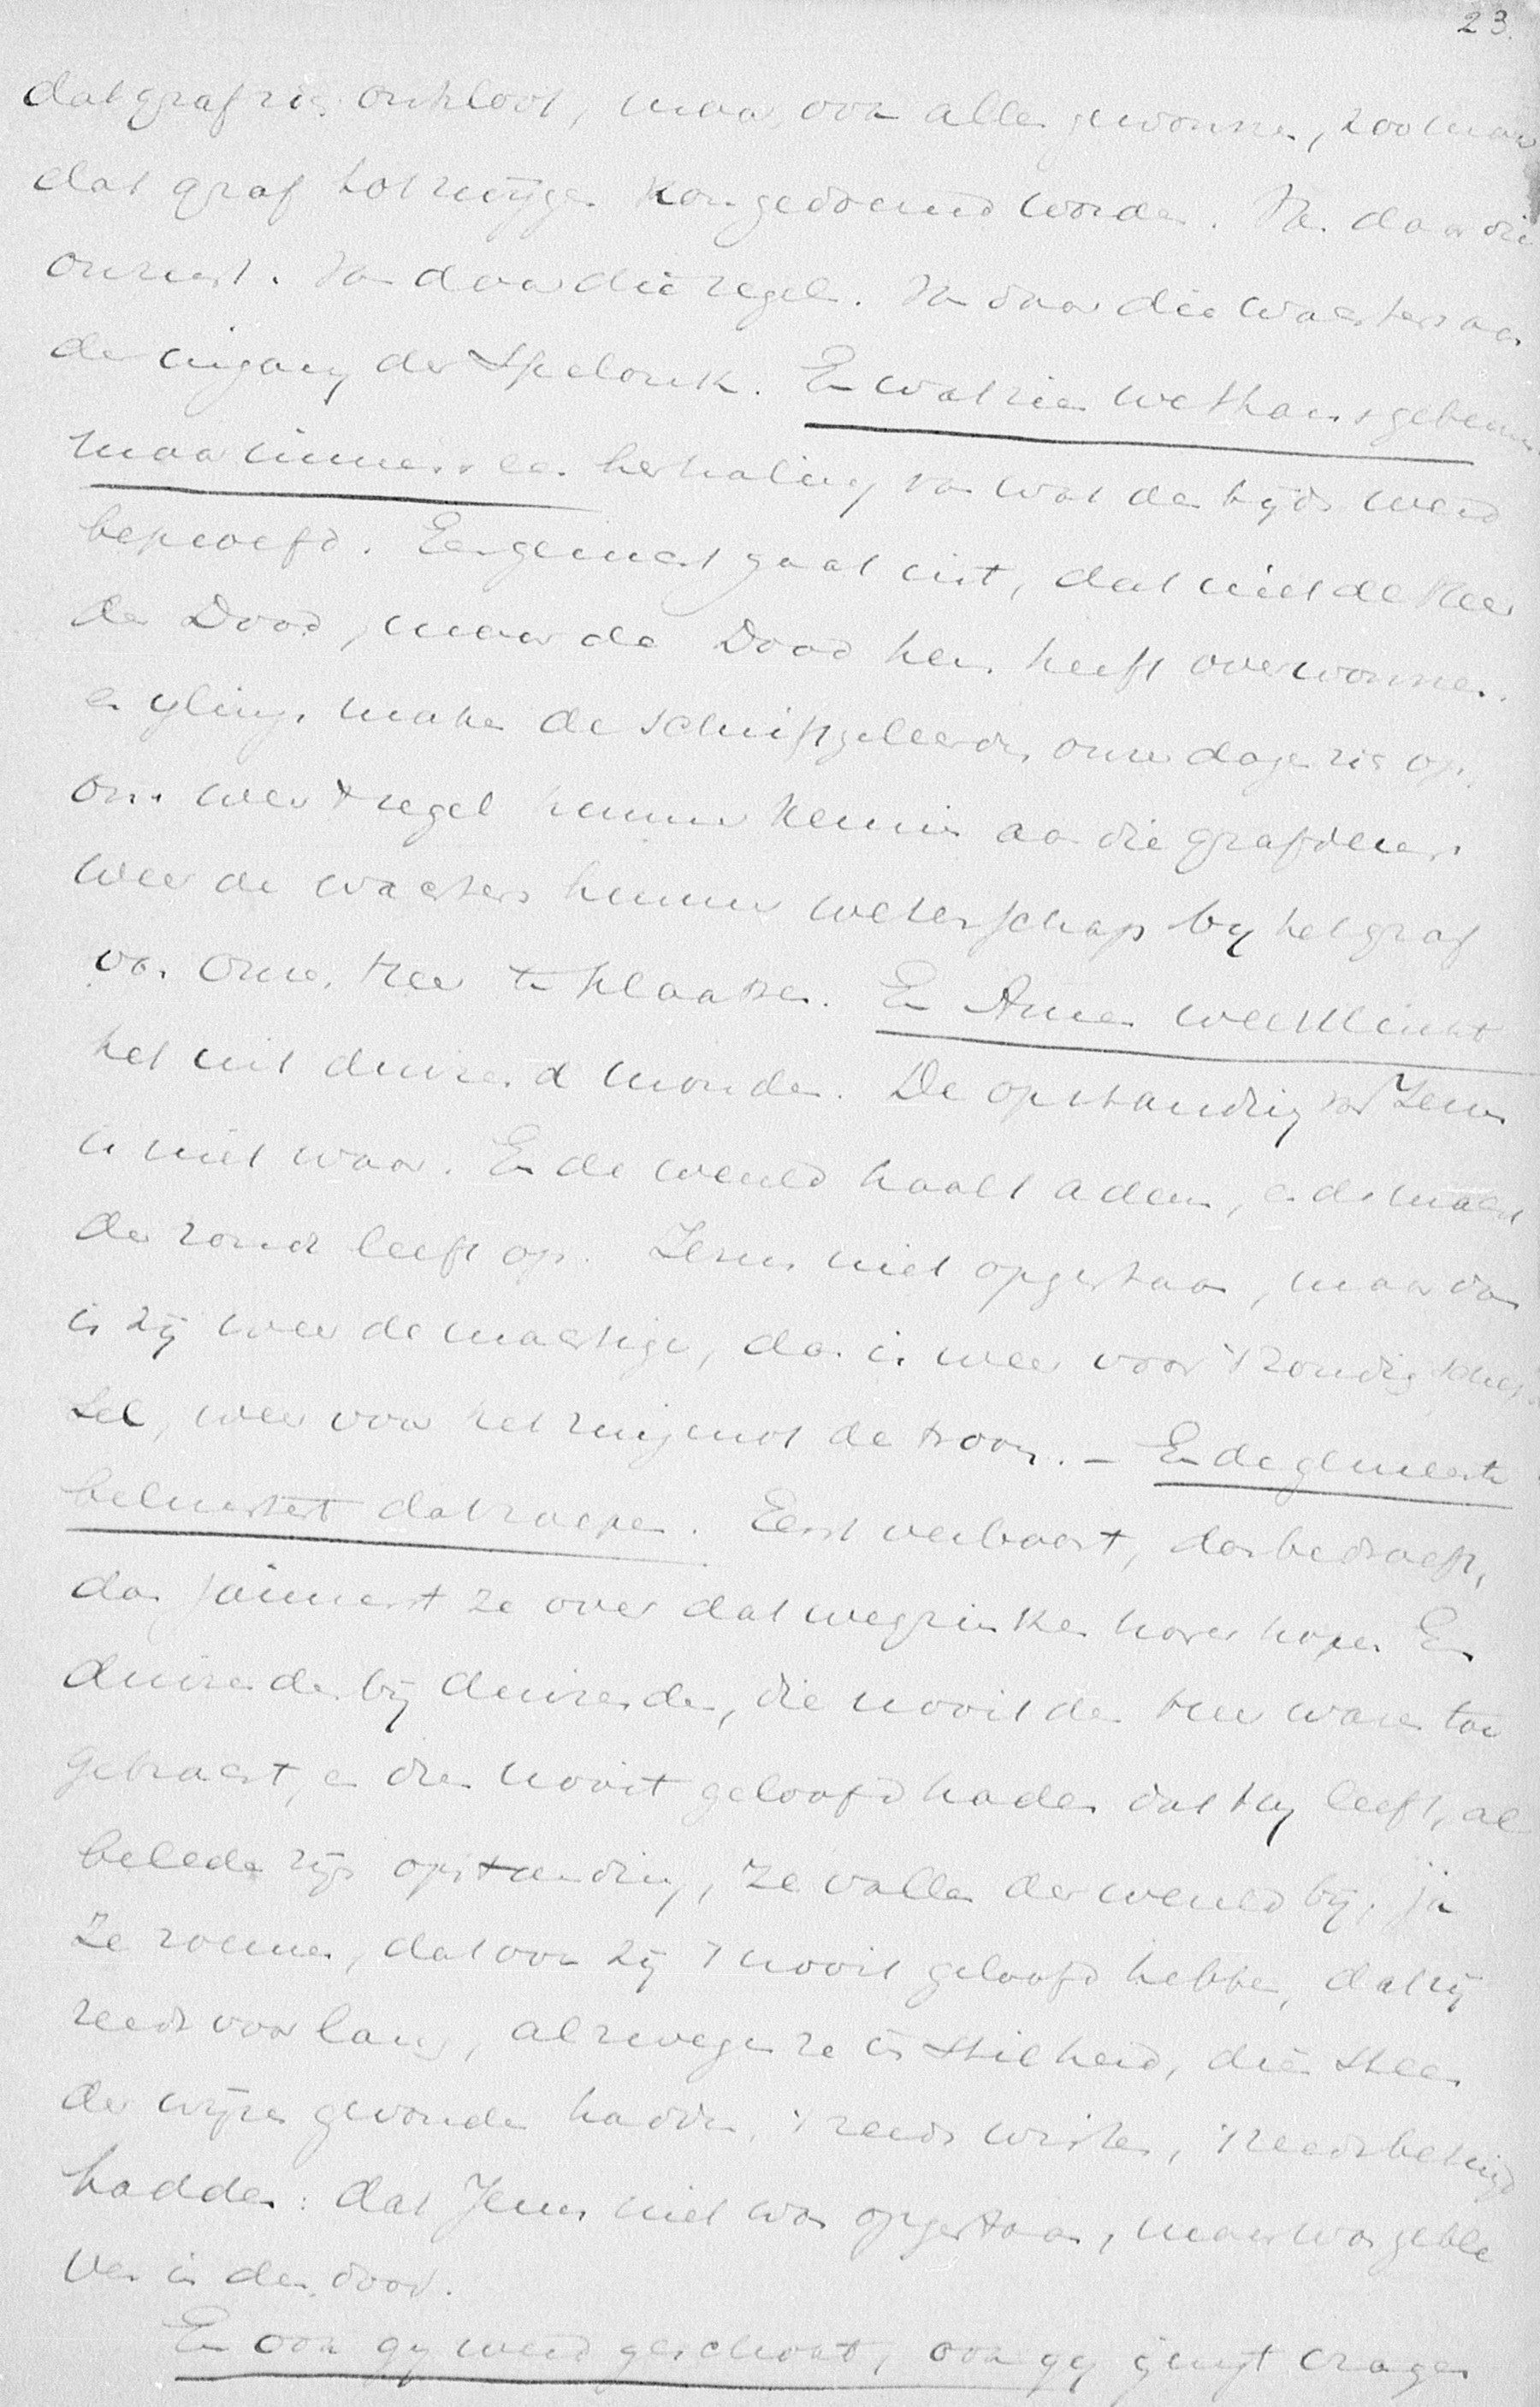 23.
dat graf zich ontsloot, maar ook alles gewonnen, zoo maar
dat graf tot zwijgen kon gedoemd worden. Van daar die
onrust. Van daar die zegel. Van daar die wachters aan
den ingang der Spelonk. En wat zien we thans gebeuren
maar immers een herhaling van wat destijds werd
beproefd. Een gerucht gaat uit, dat niet de Heer
den Dood, maar de Dood hem heeft overwonnen.
en ylings maken de schriftgeleerden onzer dagen zich op,
om weer 't zegel hunner kennis aan die grafdeur,
weer de wachters hunner wetenschap by het graf
van onzen Heer te plaatsen. En Amen weerklinkt
het uit duizend monden. De opstanding van Jezus
is niet waar. En de wereld haalt adem, en de macht
der zonde leeft op. Jezus niet opgestaan, maar dan
is zij weer de machtige, dan is weer voor 't zondig schep
sel, weer voor het zingenot de troon. – En de gemeente
beluistert dat roepen. Eerst verbaast, dan bedroeft,
dan jammert ze over dat wegzinken harer hope. En
duizenden bij duizenden, die nooit den Heer waren toe
gebracht, en die nooit geloofd hadden dat Hy leeft, al
beleden zy zijn opstanding, ze vallen der wereld bij, ja
ze roemen, dat ook zij 't nooit geloofd hebben, dat zij
reeds voor lang, al zwegen ze in stilheid, dien steen
der wijzen gevonden hadden, 't reeds wisten, 't reeds betuigd
hadden: dat Jezus niet was opgestaan, maar was geble
ven in den dood.
En ook gy werd geschokt, ook gy gingt vragen